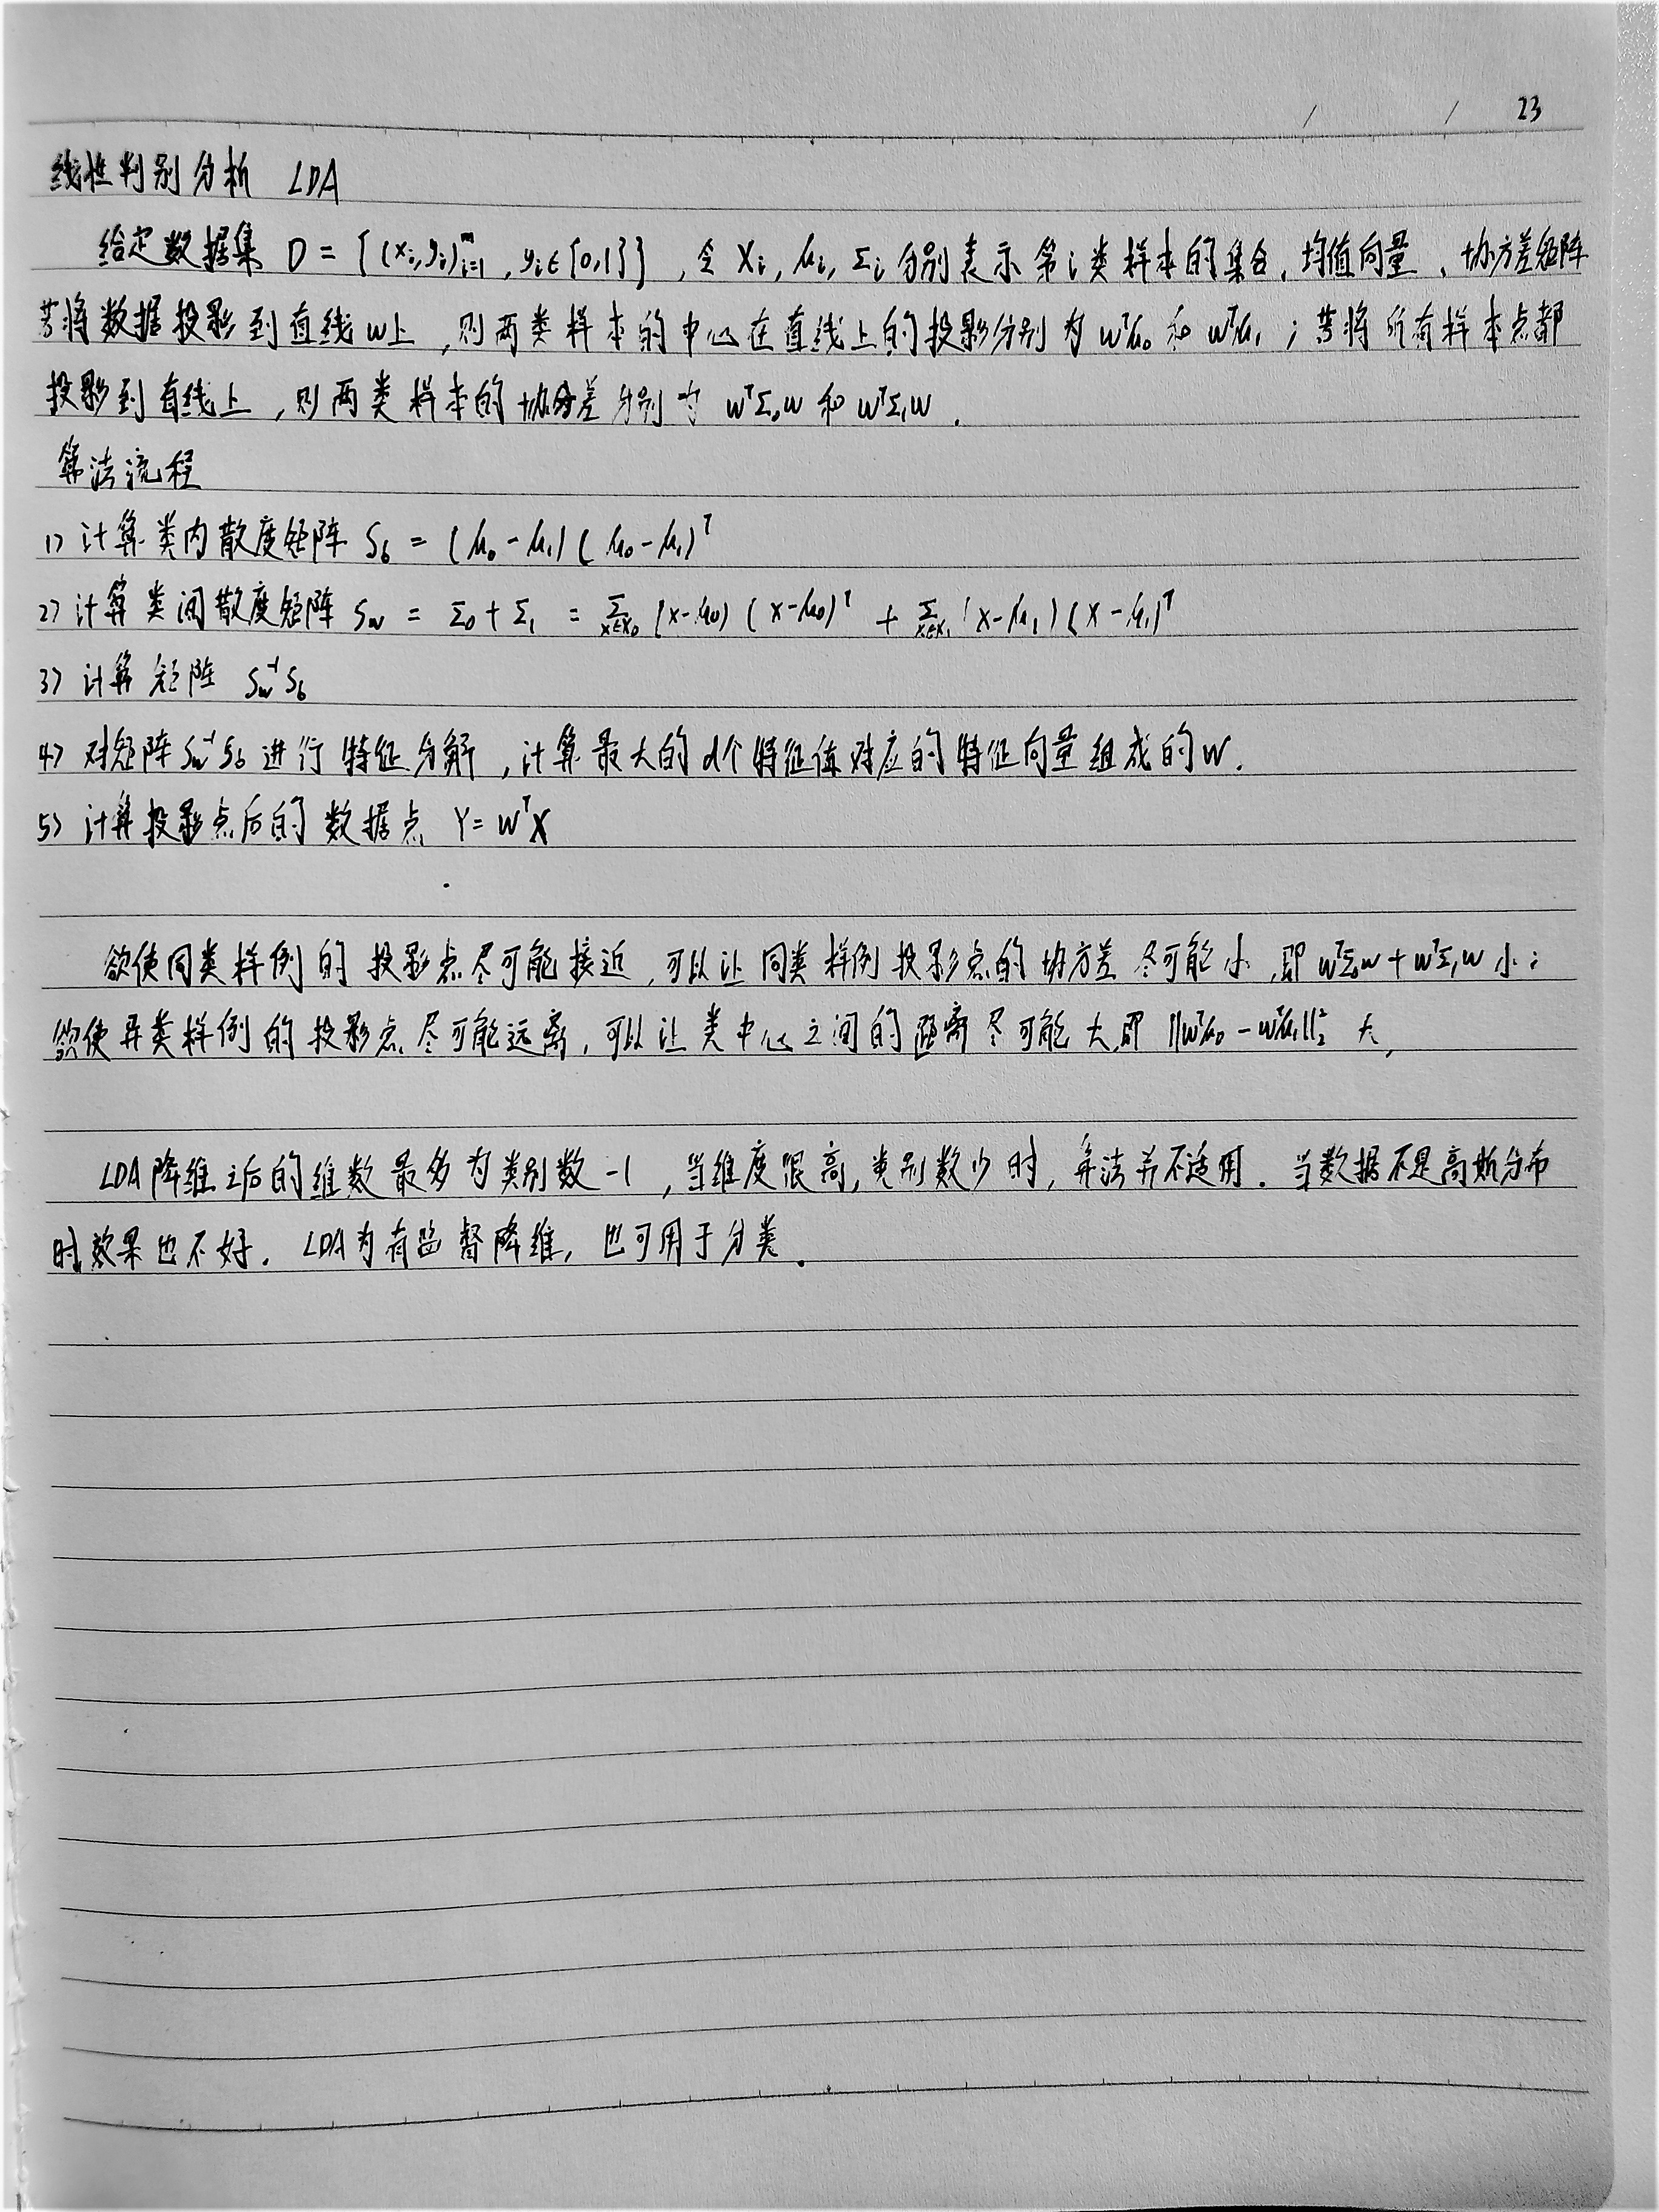 23
线性判别分析 LDA
给定数据集 D = {(xᵢ,yᵢ)ᵢ₌₁ᵐ , yᵢ∈{0,1}} , 令 Xᵢ, μᵢ, Σᵢ 分别表示第i类样本的集合、均值向量、协方差矩阵
若将数据投影到直线w上,则两类样本的中心在直线上的投影分别为 wᵀμ₀ 和 wᵀμ₁ ; 若将所有样本点都
投影到直线上,则两类样本的协方差分别为 wᵀΣ₀w 和 wᵀΣ₁w .
算法流程
1) 计算类内散度矩阵 S_b = (μ₀-μ₁)(μ₀-μ₁)ᵀ
2) 计算类间散度矩阵 S_w = Σ₀+Σ₁ = Σ_{x∈X₀} (x-μ₀)(x-μ₀)ᵀ + Σ_{x∈X₁} (x-μ₁)(x-μ₁)ᵀ
3) 计算矩阵 S_w⁻¹S_b
4) 对矩阵S_w⁻¹S_b进行特征分解,计算最大的d个特征值对应的特征向量组成的W.
5) 计算投影点后的数据点 Y=WᵀX
欲使同类样例的投影点尽可能接近,可以让同类样例投影点的协方差尽可能小,即 wᵀΣ₀w + wᵀΣ₁w 小;
欲使异类样例的投影点尽可能远离,可以让类中心之间的距离尽可能大,即 ||wᵀμ₀ - wᵀμ₁||₂² 大,
LDA降维之后的维数最多为类别数-1,当维度很高,类别数少时,算法并不适用. 当数据不是高斯分布
时效果也不好. LDA为有监督降维, 也可用于分类.